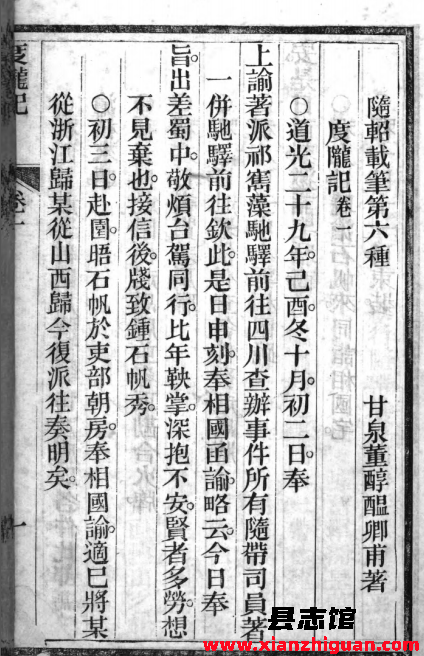 隨軺載筆第六種
甘泉董醇醖卿甫著
度隴記卷一
○道光二十九年己酉冬十月初二日奉
上諭著派祁寯藻馳驛前往四川查辦事件所有隨帶司員著
一併馳驛前往欽此是日申刻奉相國函諭略云今日奉
旨出差蜀中敬煩台駕同行比年鞅掌深抱不安賢者多勞想
不見棄也接信後牋致鍾石帆秀
○初三日赴園晤石帆於吏部朝房奉相國諭適已將某
從浙江歸某從山西歸今復派往奏明矣
度隴記
卷一
一
县志馆
www.xianzhiguan.com